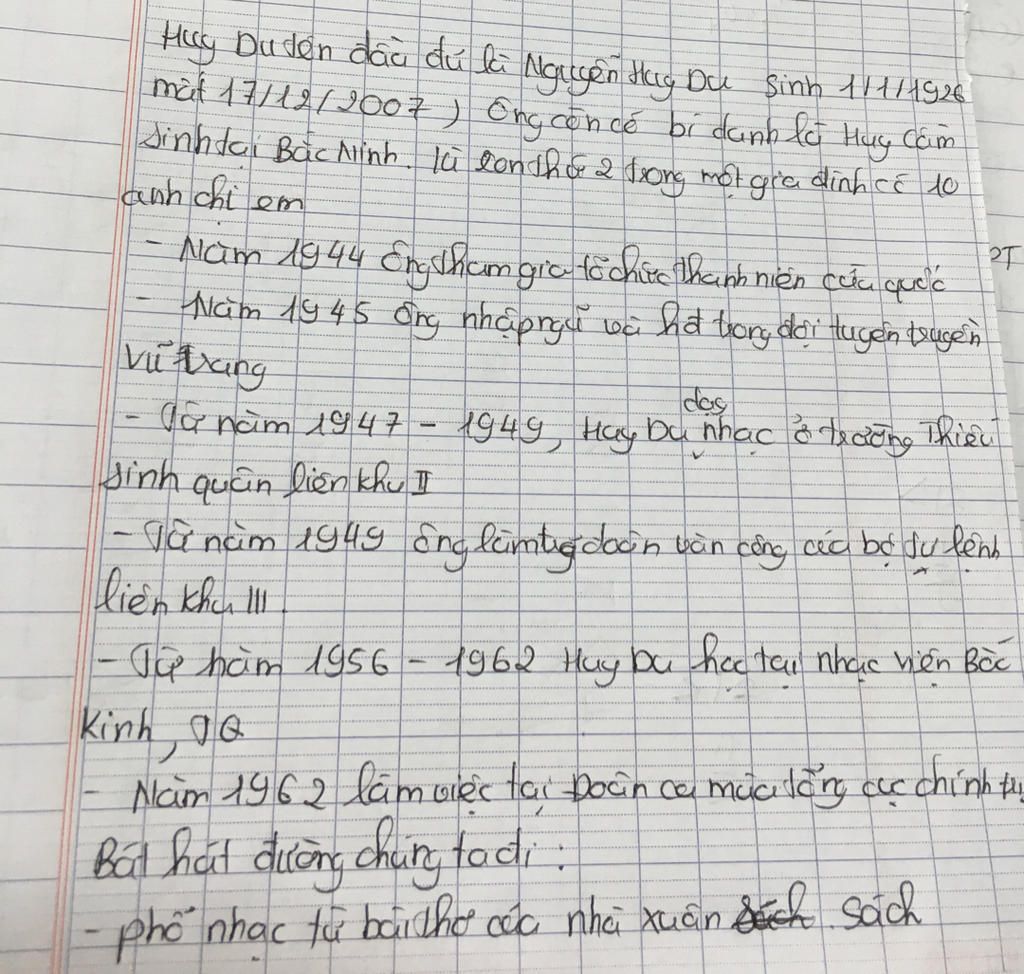 Huy Du tên đầy đủ là Nguyễn Huy Du sinh 1/1/1926
mất 17/12/2007) Ông còn có bí danh là Huy Cầm
sinh tại Bắc Ninh. là con thứ 2 trong một gia đình có 10
anh chị em
- Năm 1944 ông tham gia tổ chức thanh niên cứu quốc
PT
- Năm 1945 ông nhập ngũ và hát trong đội tuyên truyền
vũ trang
- Từ năm 1947 - 1949, Huy Du dạy nhạc ở trường Thiếu
sinh quân liên khu II
- Từ năm 1949 ông làm trưởng đoàn văn công của bộ tư lệnh
liên khu III
- Từ năm 1956 - 1962 Huy Du học tại nhạc viện Bắc
Kinh, TQ
- Năm 1962 làm việc tại Đoàn ca múa tổng cục chính trị
Bài hát đường chúng ta đi:
- phổ nhạc từ bài thơ của nhà xuân sách